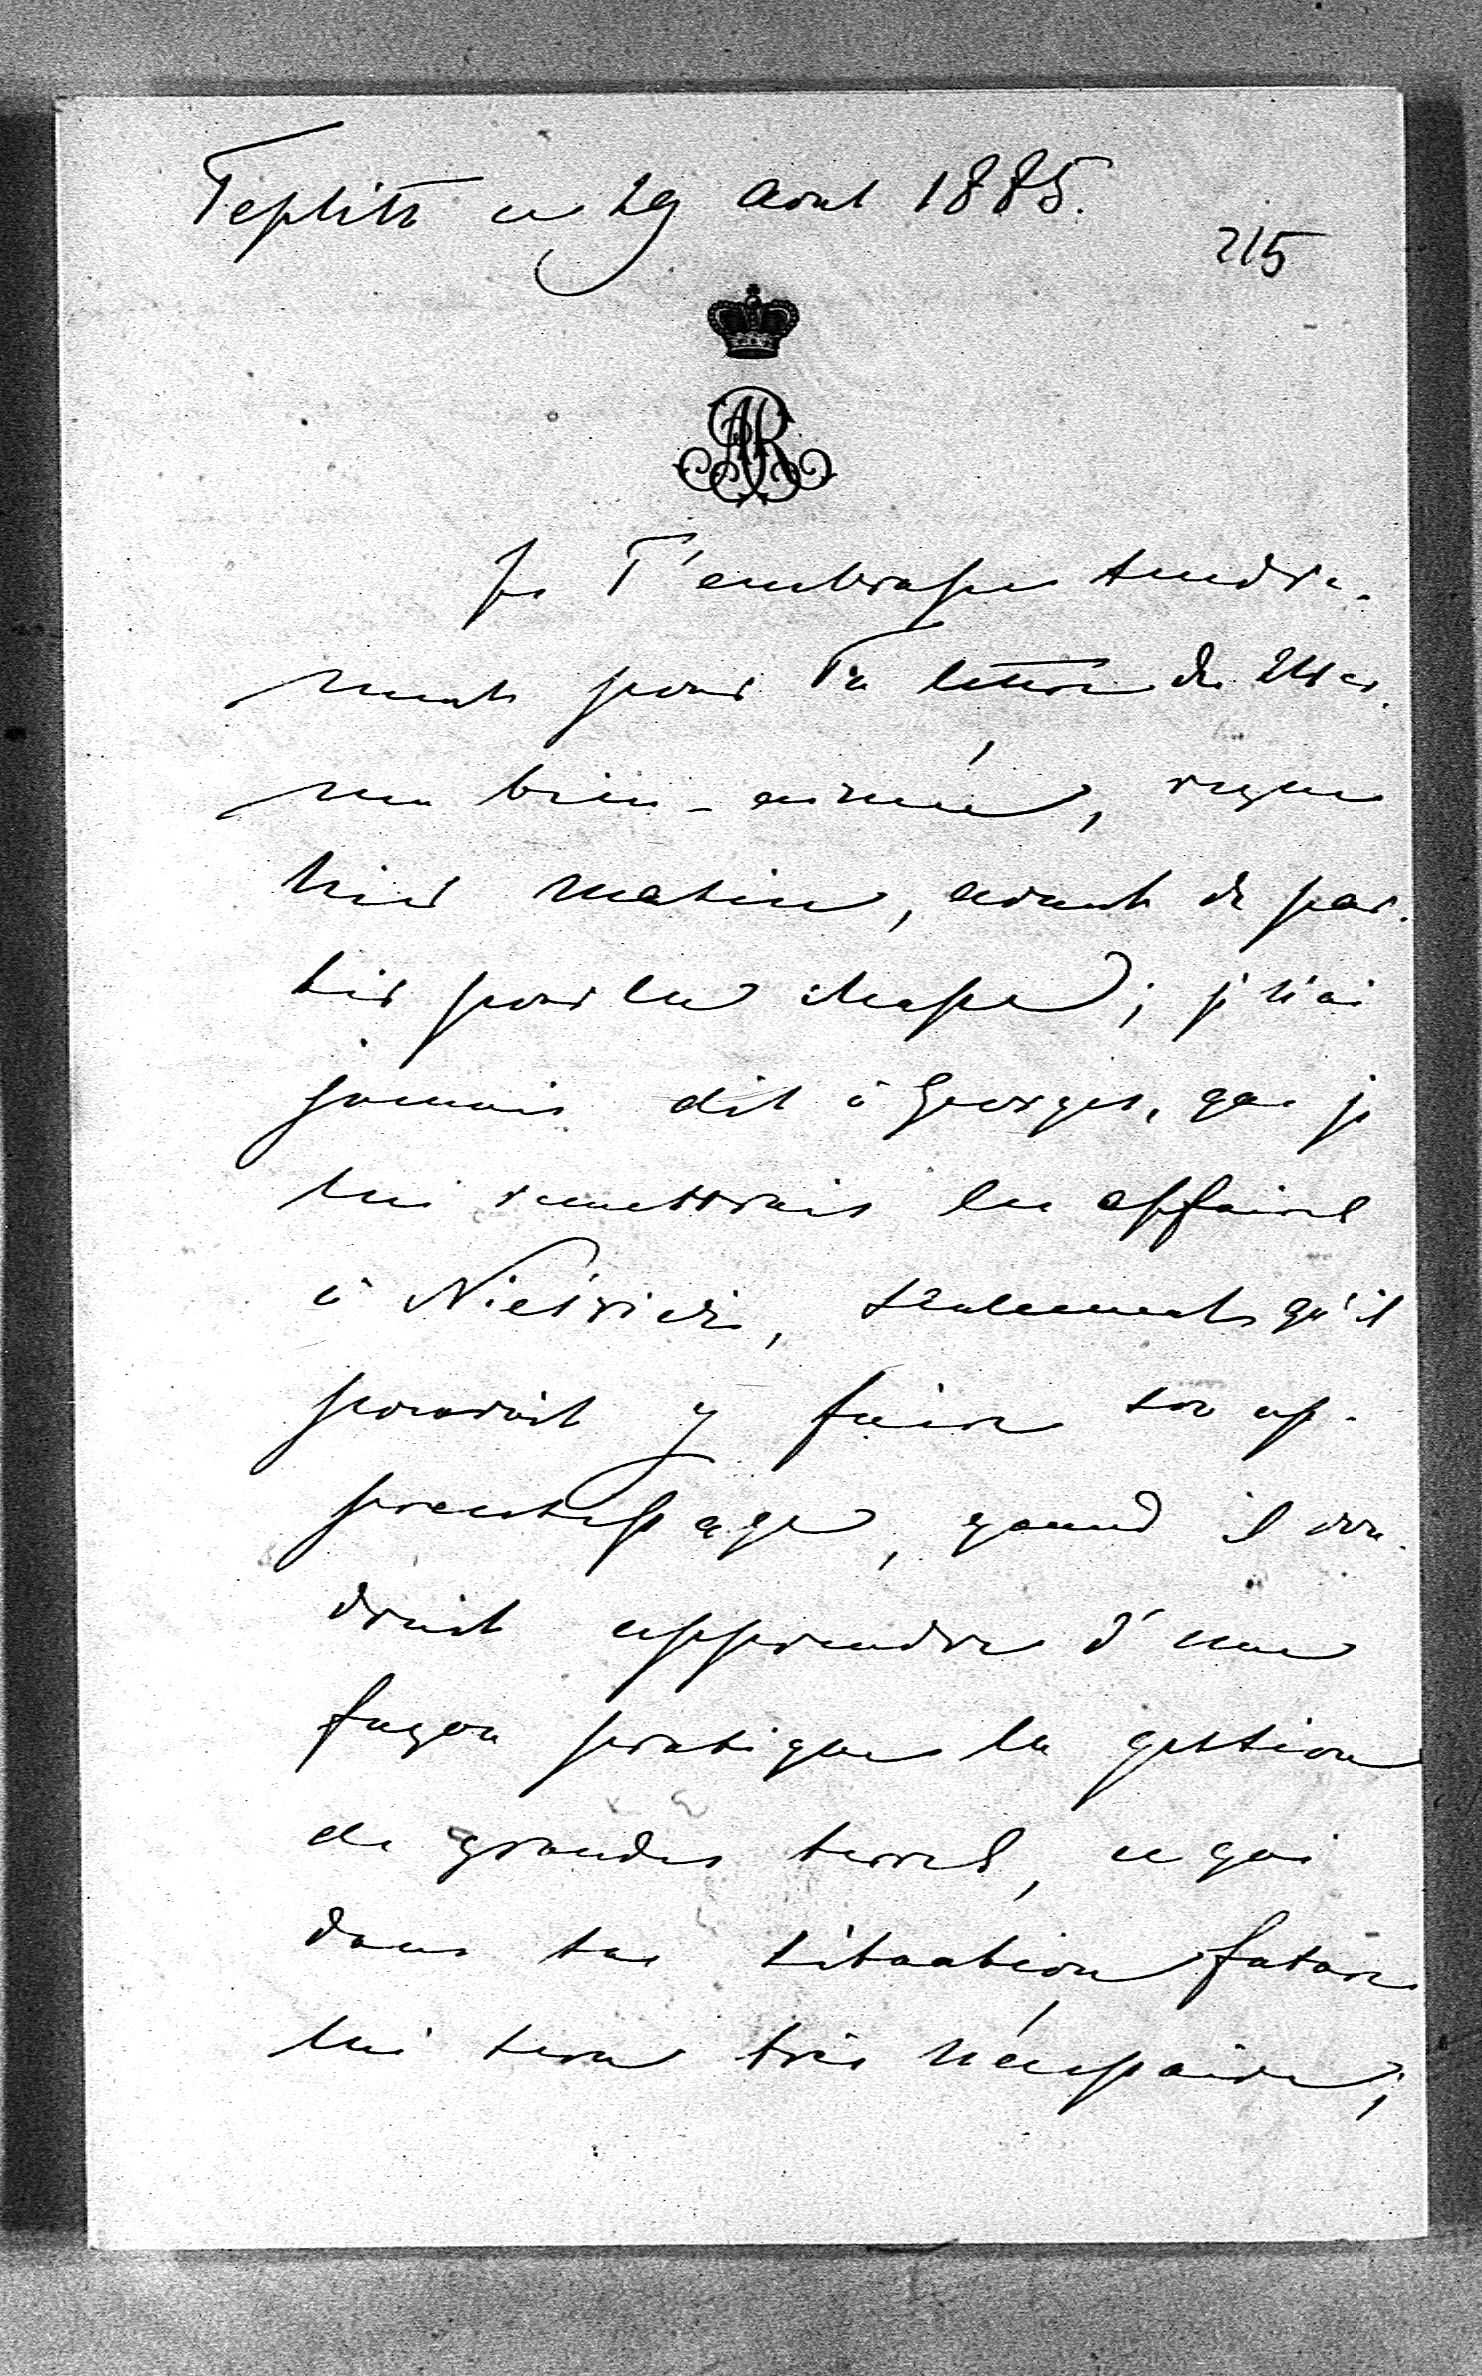 Teplitz ce 29 Aout 1885.
215
AR
Je T'embrasse tendre-
ment pour Ta lettre de
ma bien-aimée, reçue
hier matin, avant de par-
tir pour la chasse; je n'ai
jamais dit à Georges, que je
lui remettrais les affaires
à Nieśwież, seulement qu'il
pourrait y faire son ap-
prentissage, quand il vou-
drait apprendre d'une
façon pratique la gestion
de grandes terres, ce qui
dans sa situation future
lui sera très nécessaire;